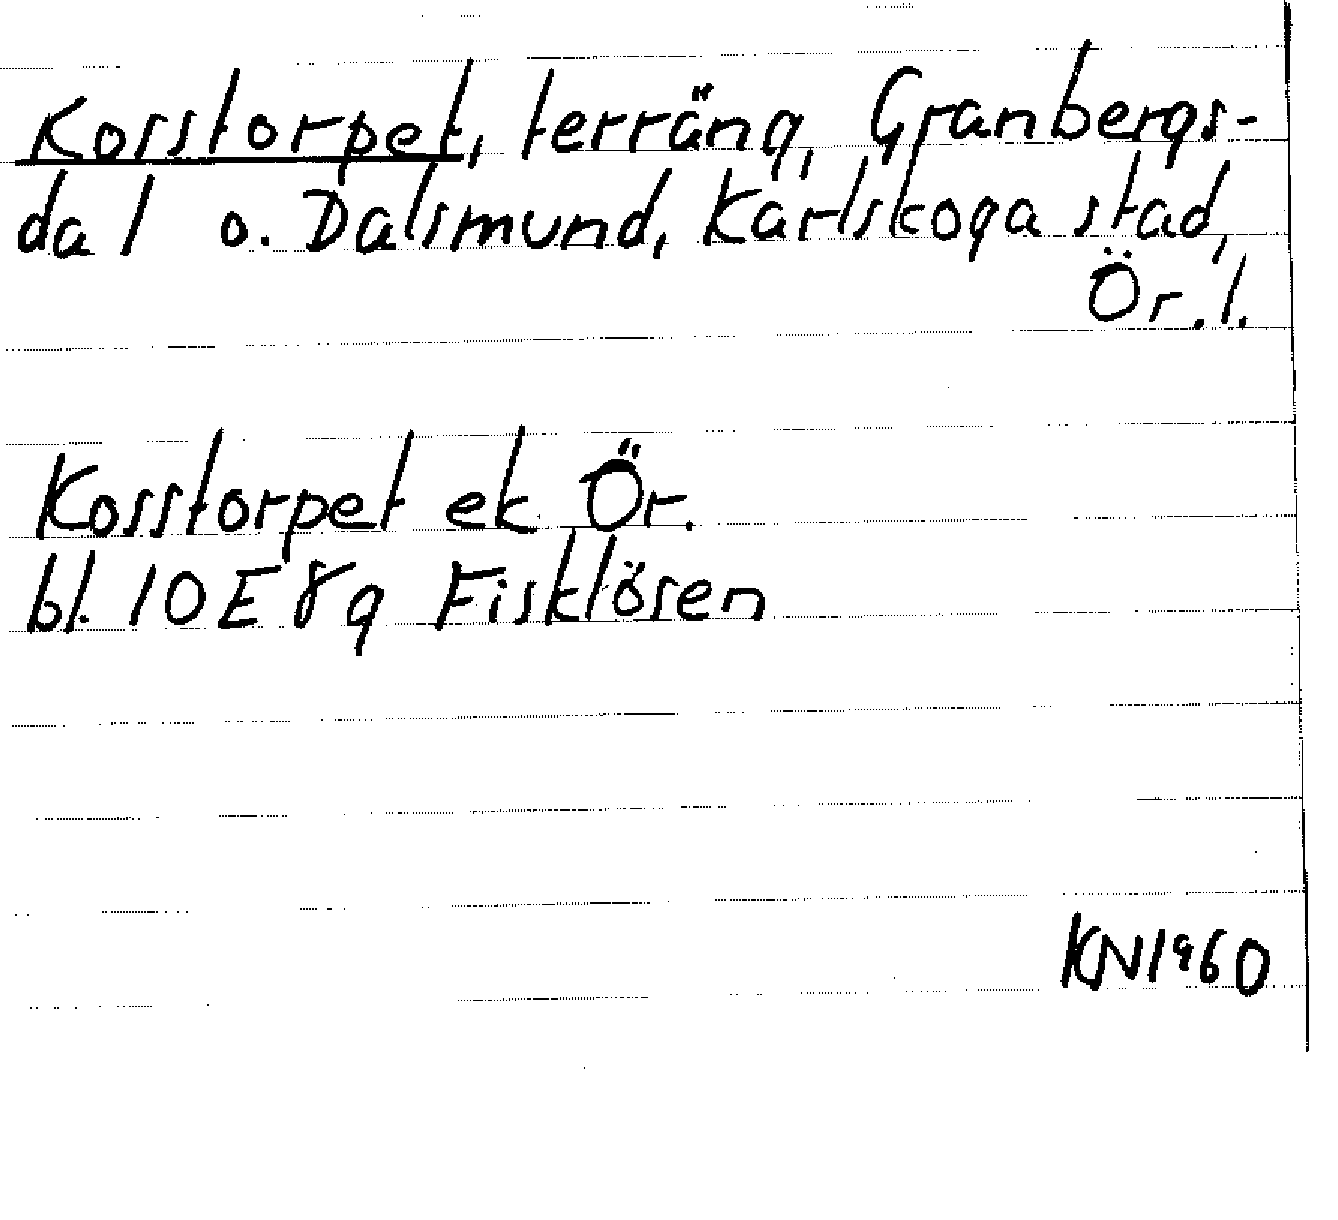 Kosstorpet, terräng, Granbergs-
dal o. Dalsmund, Karlskoga stad,
Ör. l.
Kosstorpet ek Ör.
bl. 10E8g Fisklösen
KN1960